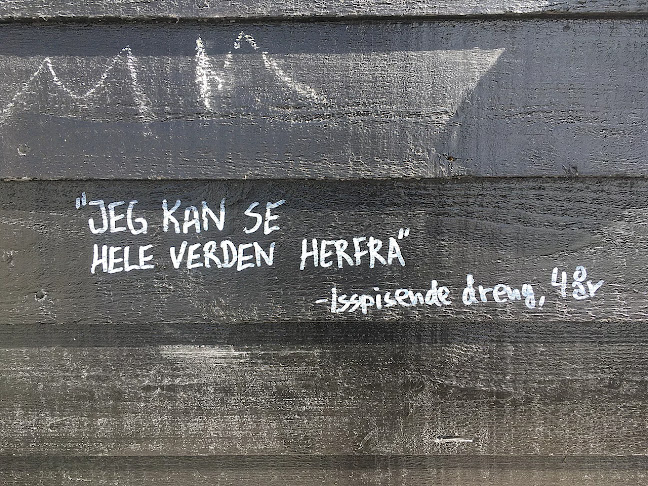 "JEG KAN SE
HELE VERDEN HERFRA"
-Isspisende dreng, 4 år